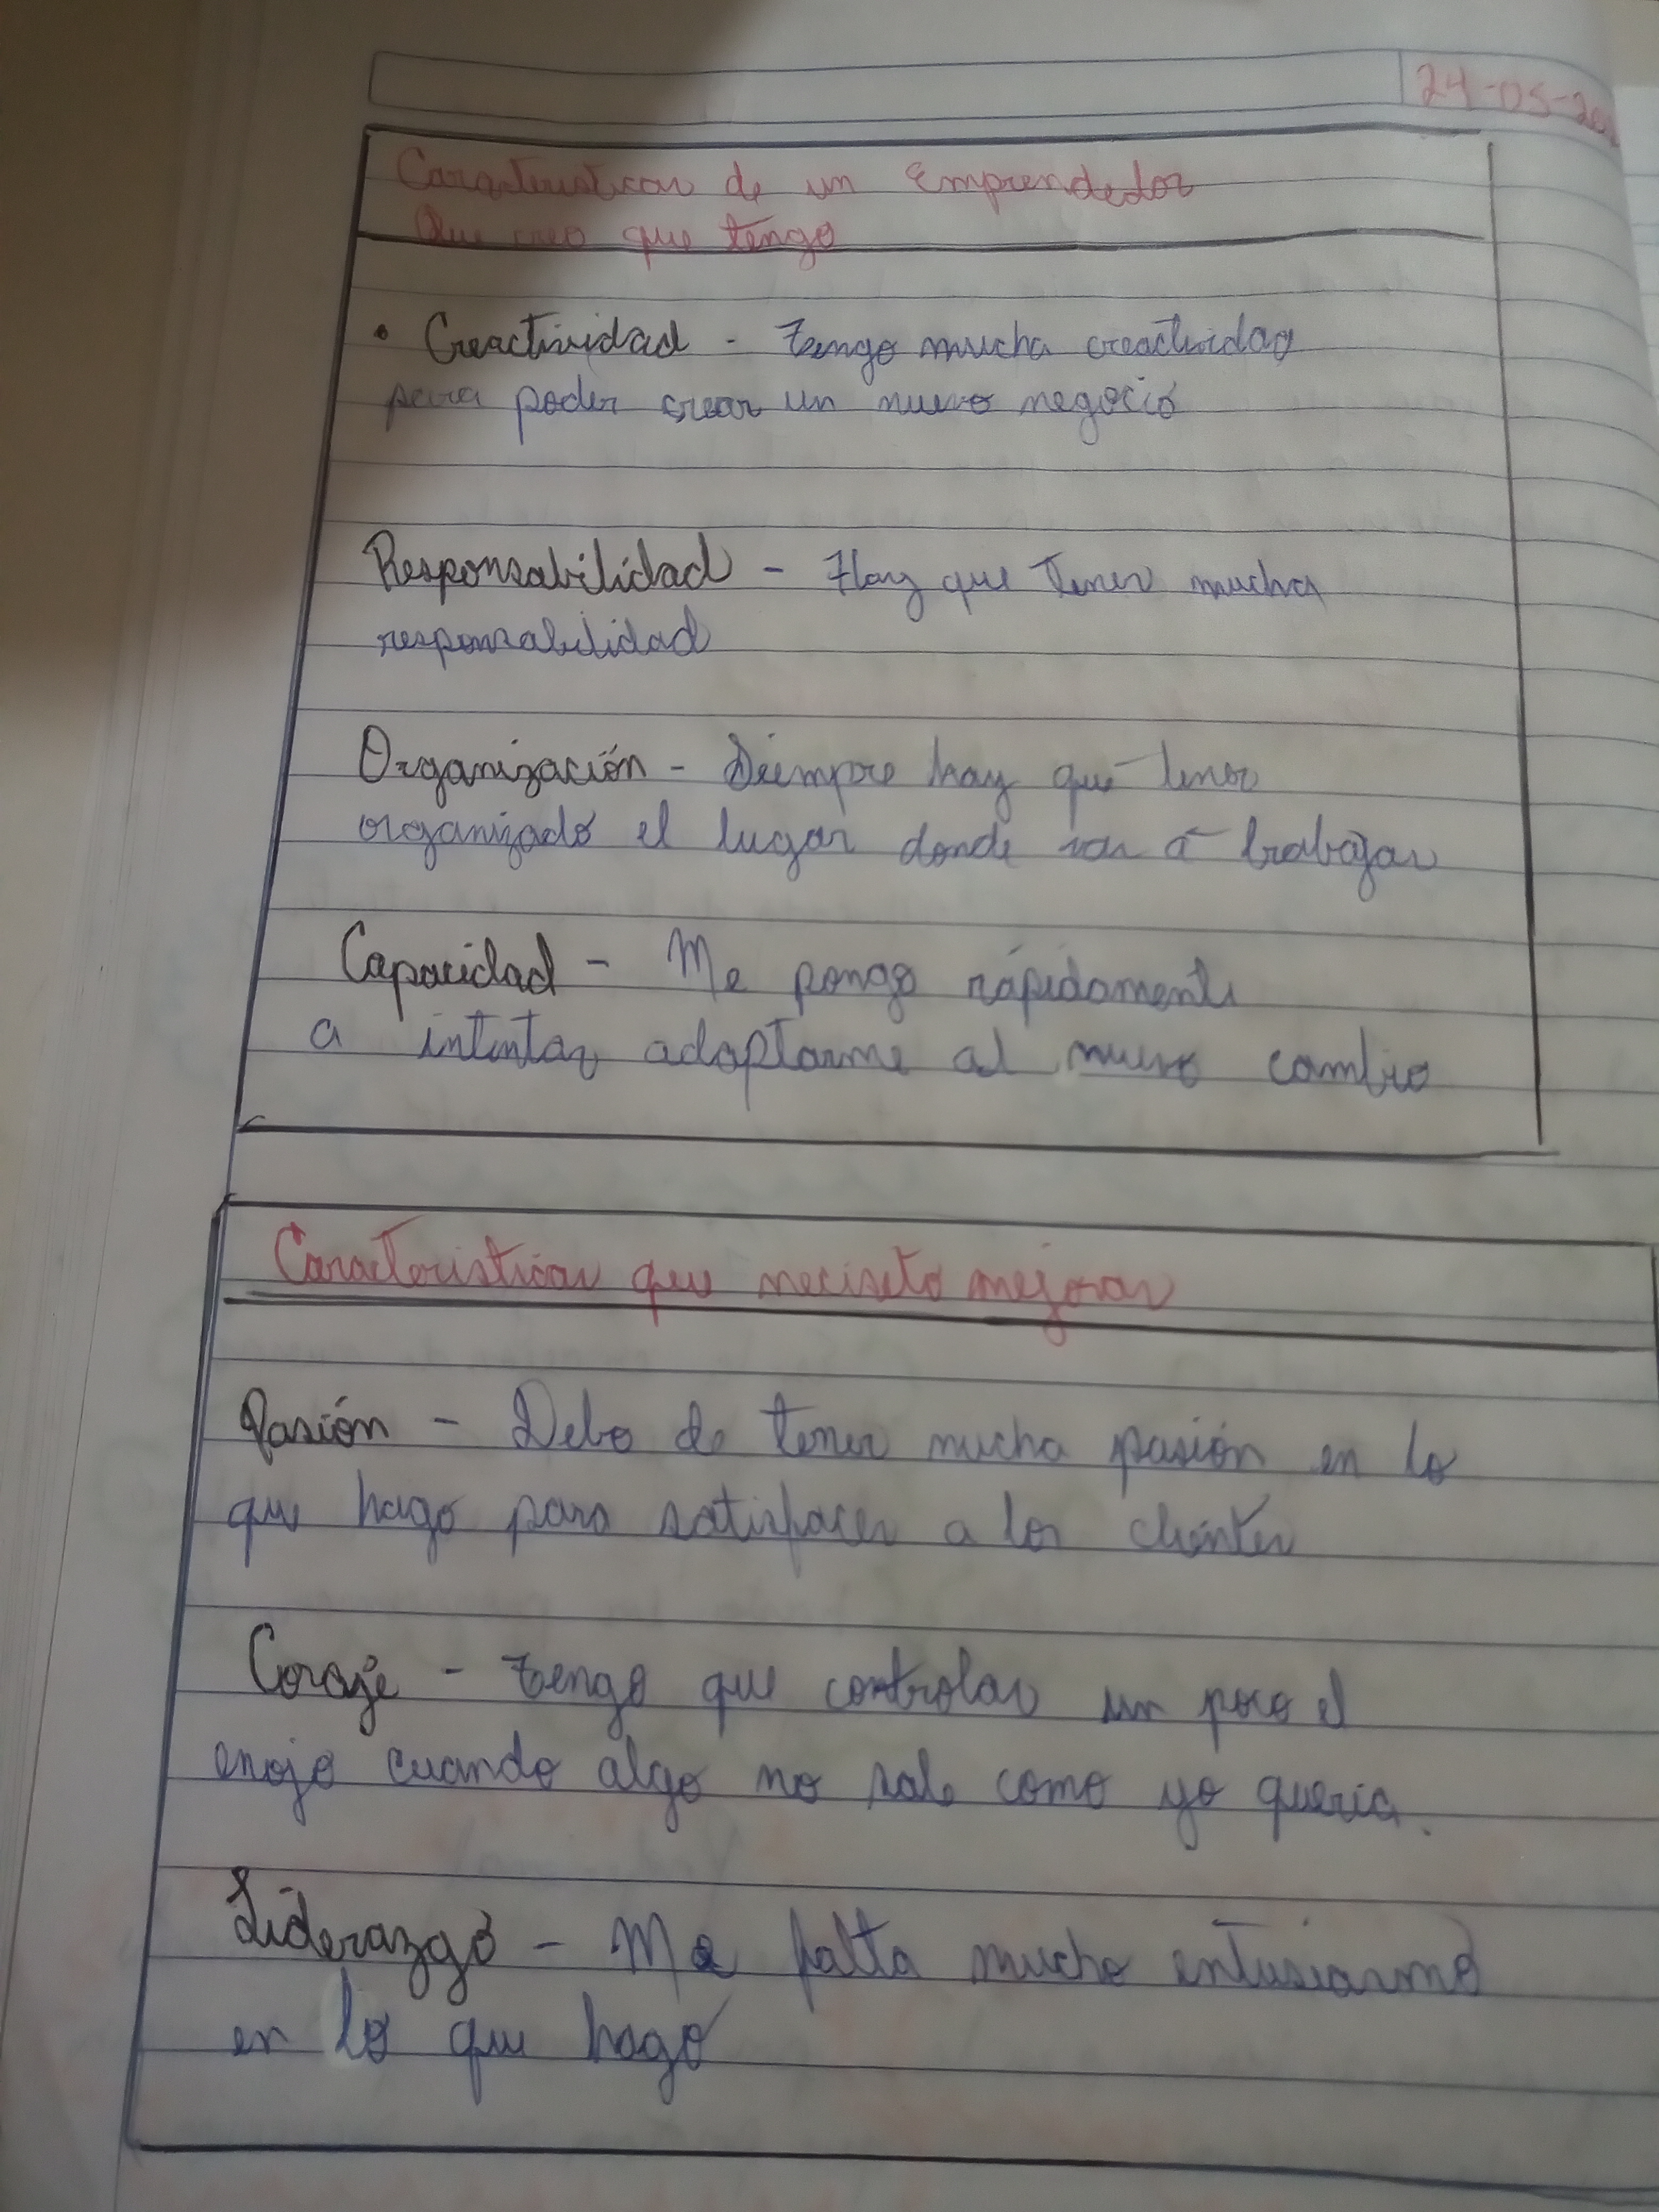 24-05-20
Caracteristicas de un Emprendedor
Que creo que tengo
• Creactividad - Tengo mucha creactividad
para poder crear un nuevo negocio
Responsabilidad - Hay que tener mucha
responsabilidad
Organización - Siempre hay que tener
organizado el lugar donde vas a trabajar
Capacidad - Me pongo rápidamente
a intentar adaptarme al nuevo cambio
Caracteristicas que neciseto mejorar
Pasión - Debo de tener mucha pasión en lo
que hago para satisfacer a los clientes
Coraje - Tengo que controlar un poco el
enojo cuando algo no sale como yo queria.
Liderazgo - Me falta mucho entusiasmo
en lo que hago